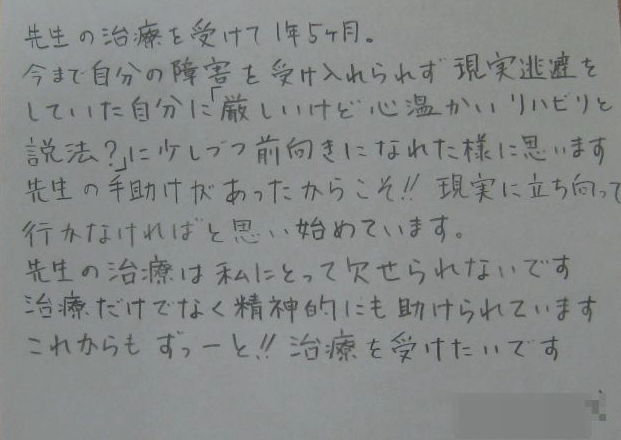 先生の治療を受けて1年5ヶ月。
今まで自分の障害を受け入れられず現実逃避を
していた自分に「厳しいけど心温かいリハビリと
説法?」に少しづつ前向きになれた様に思います
先生の手助けがあったからこそ!!現実に立ち向って
行かなければと思い始めています。
先生の治療は私にとって欠せられないです
治療だけでなく精神的にも助けられています
これからもずっーと!!治療を受けたいです